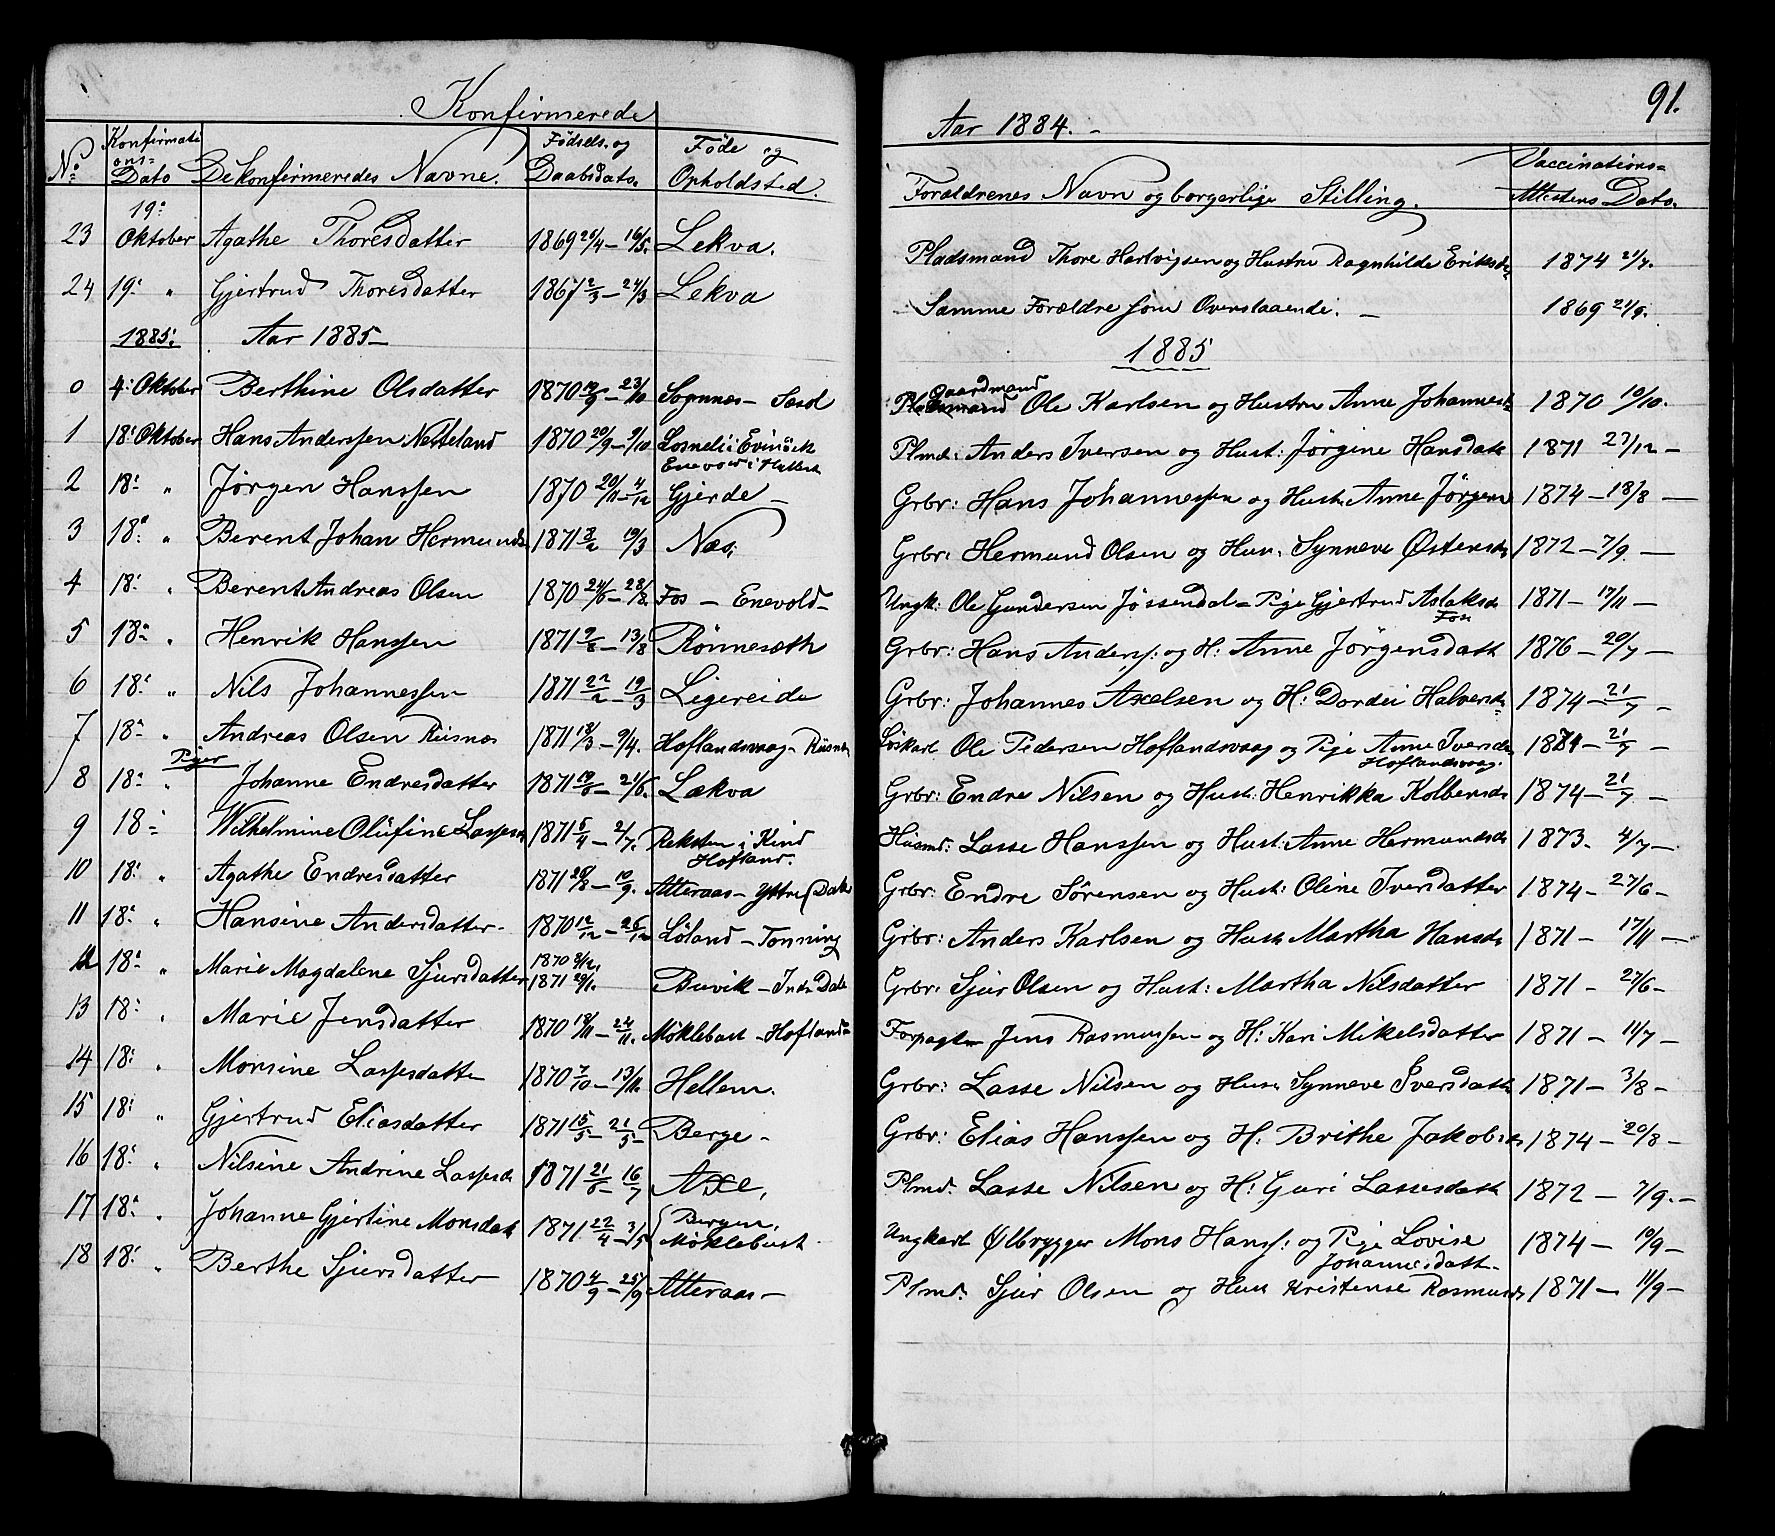 Konfirmerede
Aar 1884.-
91.
No Konfirmations= Dato De konfirmeredes Navne. Fødsels- og Daabsdato. Føde og Opholdsted. Forældrenes Navn og borgerlige Stilling. Vaccinations= Attestens Dato.
23 19: Oktober Agathe Thoresdatter 1869 25/4 - 16/5. Lekva. Pladsmand Thore Hartvigsen og Hustru Ragnhilde Eriksd: 1874 21/7.
24 19: " Gjertrud Thoresdatter 1867 2/3 - 24/3 Lekva Samme Forældre som Overstaaende. - 1869 21/9.
1885: Aar 1885- 1885
0 4: Oktober Berthine Olsdatter 1870 19/9 - 23/10 Sognnæs - Sæd Gaardmand Ole Karlsen og Hustru Anne Johannesd: 1870 10/10.
1 18: Oktober Hans Anderssen Netteland 1870 20/9 - 9/10 Losneli i Evindvik Plmd: Anders Iversen og Hust: Jørgine Hansdatt 1871 27/12 -
2 18: " Jørgen Hanssen 1870 20/11 - 4/12 Enevold i Gjerde - Grbr: Hans Johannessen og Hust: Anne Jørgens 1874 - 18/8 -
3 18: " Berent Johan Hermunds 1871 8/2 19/3 Næs. Grbr: Hermund Olsen og Hus. Synneve Østensd 1872 - 7/9 -
4 18: " Berent Andreas Olsen 1870 24/6 - 28/8 Fos - Enevold - Ungk: Ole Gundersen Jøssendal - Pige Gjertrud Aslaksd Fos 1871 - 17/11 -
5 18: " Henrik Hanssen 1871 9/8 - 13/8 Rönneseth Grbr: Hans Anders: og H: Anne Jörgensdatt 1876 - 20/7 -
6 18: " Nils Johannessen 1871 22/2 - 19/3 Ligereide Grbr: Johannes Axelsen og H: Dordei Halversd: 1874 - 21/7 -
7 18: " Andreas Olsen Risnæs 1871 18/3 - 9/4. Hoflandsvaag - Risnæs Löskarl Ole Pedersen Hoflandsvaag og Pige Anne Iversd Hoflandsvaag. 1884 - 21/7 -
Piger
8 18: " Johanne Endresdatter 1871 19/5 - 21/6. Lækva Grbr: Endre Nilsen og Hust: Henrikka Kolbensd 1874 - 21/7 -
9 18: Wilhelmine Olufine Lassesd 1871 5/4 - 2/7. Reksten i Kind Hofland. Husmd: Lasse Hanssen og Hust: Anne Hermundsd 1873. 4/7 -
10 18: " Agathe Endresdatter 1871 20/8 - 10/9. Atteraas - Yttre Dale Grbr: Endre Sörensen og Hust: Oline Iversdatter 1874 - 27/6 -
11 18: " Hansine Andersdatter - 1870 12/12 - 26/12 Løland - Tonning Grbr: Anders Karlsen og Hust: Martha Hansd 1871 - 17/11 -
12 18: " Marie Magdalene Sjursdatter 1870 8/12. 1871 29/1. Buvik - Indr Dale Grbr: Sjur Olsen og Hust: Martha Nilsdatter 1871 - 27/6 -
13 18: " Marie Jensdatter 1870 13/11 - 24/11. Møklebust - Hofland Forpagter Jens Rasmussen og H: Kari Mikelsdatter 1871 - 11/7 -
14 18: " Monsine Lassesdatter 1870 7/10 - 13/11. Hellem. Grbr: Lasse Nilsen og Hust: Synneve Iversdatt 1871 - 3/8 -
15 18: " Gjertrud Eliasdatter 1871 15/5 - 21/5 - Berge - Grbr: Elias Hanssen og H: Brithe Jakobsd 1874 - 20/8 -
16 18: " Nilsine Andrine Lassesd 1871 21/6 - 16/7 Axe. Plmd. Lasse Nilsen og H: Guri Lassesdatt 1872 - 7/9. -
17 18: " Johanne Gjertine Monsdatt 1871 22/4 - 3/5 Bergen, Møklebust Ungkarl Ølbrygger Mons Hans: og Pige Lovise Johannesdatt - 1874 - 10/9 -
18 18: " Berthe Sjursdatter 1870 4/9 - 25/9 Atteraas - Plmd. Sjur Olsen og Hust Kristense Rasmusd 1871 - 11/9 -